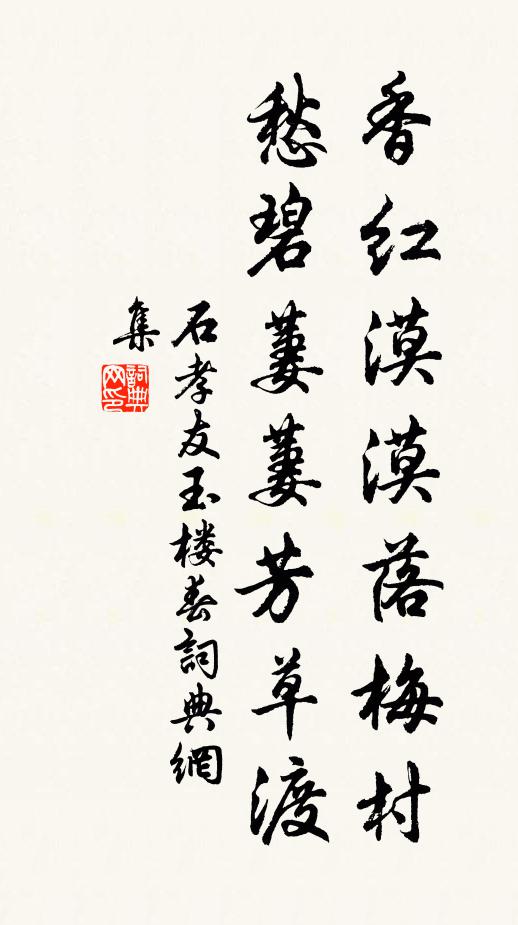 香紅漠漠落梅村
愁碧萋萋芳草渡
石孝友玉楼春詞典網
集
詞典网印